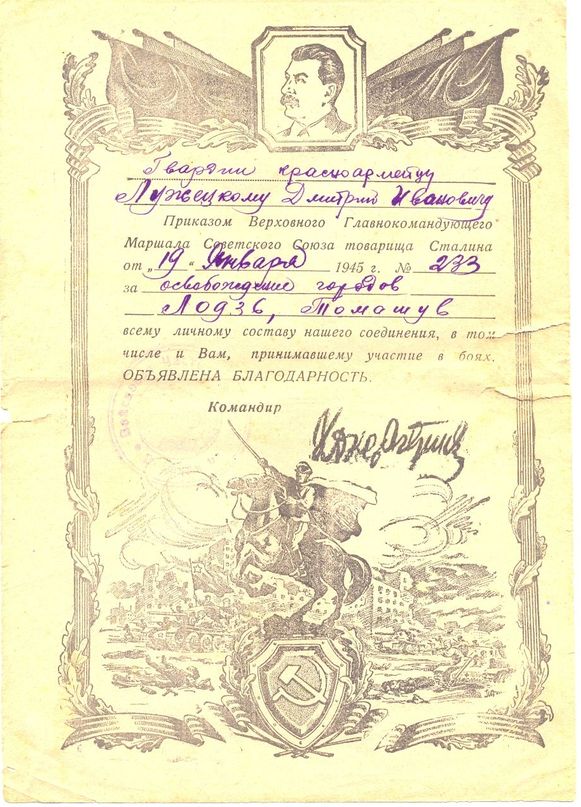 Гвардии красноармейцу
Лужецкому Дмитрию Ивановичу
Приказом Верховного Главнокомандующего
Маршала Советского Союза товарища Сталина
от „19" Января 1945 г. № 233
за освобождение городов
Лодзь, Томашув
всему личному составу нашего соединения, в том
числе и Вам, принимавшему участие в боях,
ОБЪЯВЛЕНА БЛАГОДАРНОСТЬ.
Командир